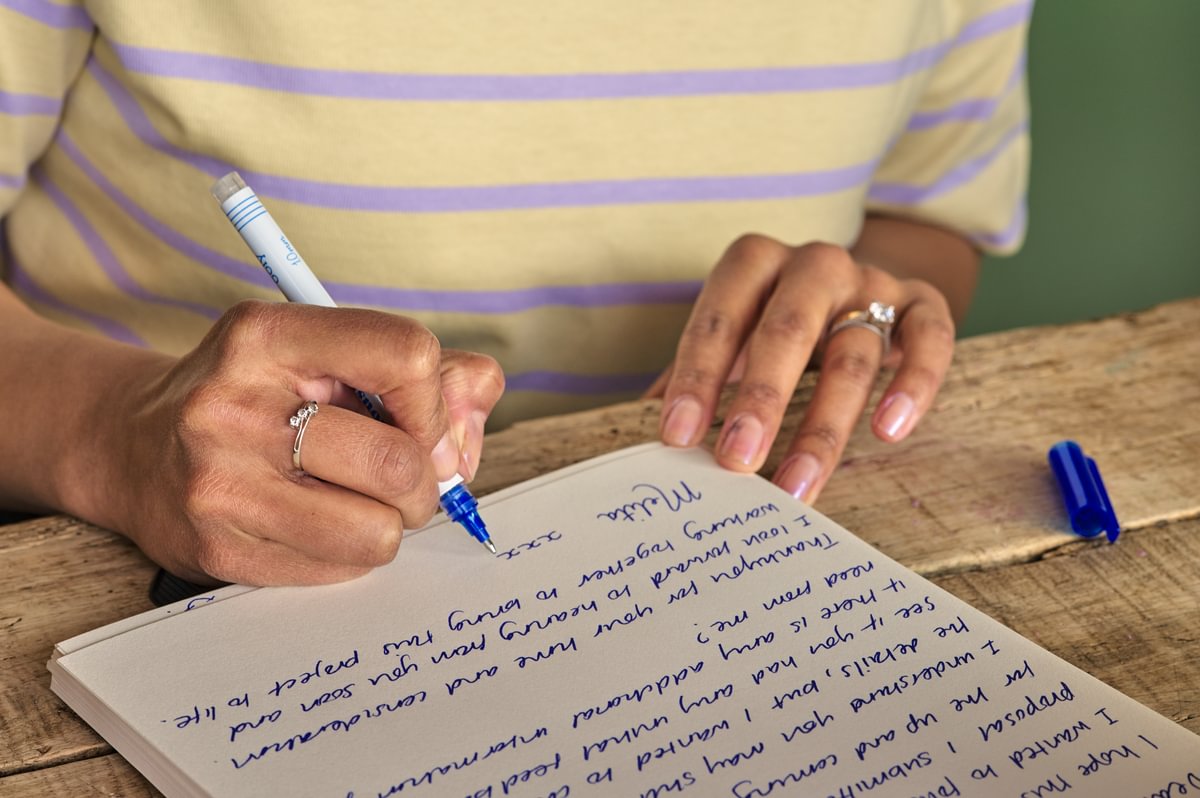 I hope this
I wanted to
proposal I
for the up and coming
I understand you may
the details, but I wanted to
see if you had any initial
if there is any additional information
need from me?
Thankyou for your time and consideration
I look forward to hearing from you soon and
working together to bring this project to life.
Melita
xxxx
10mm